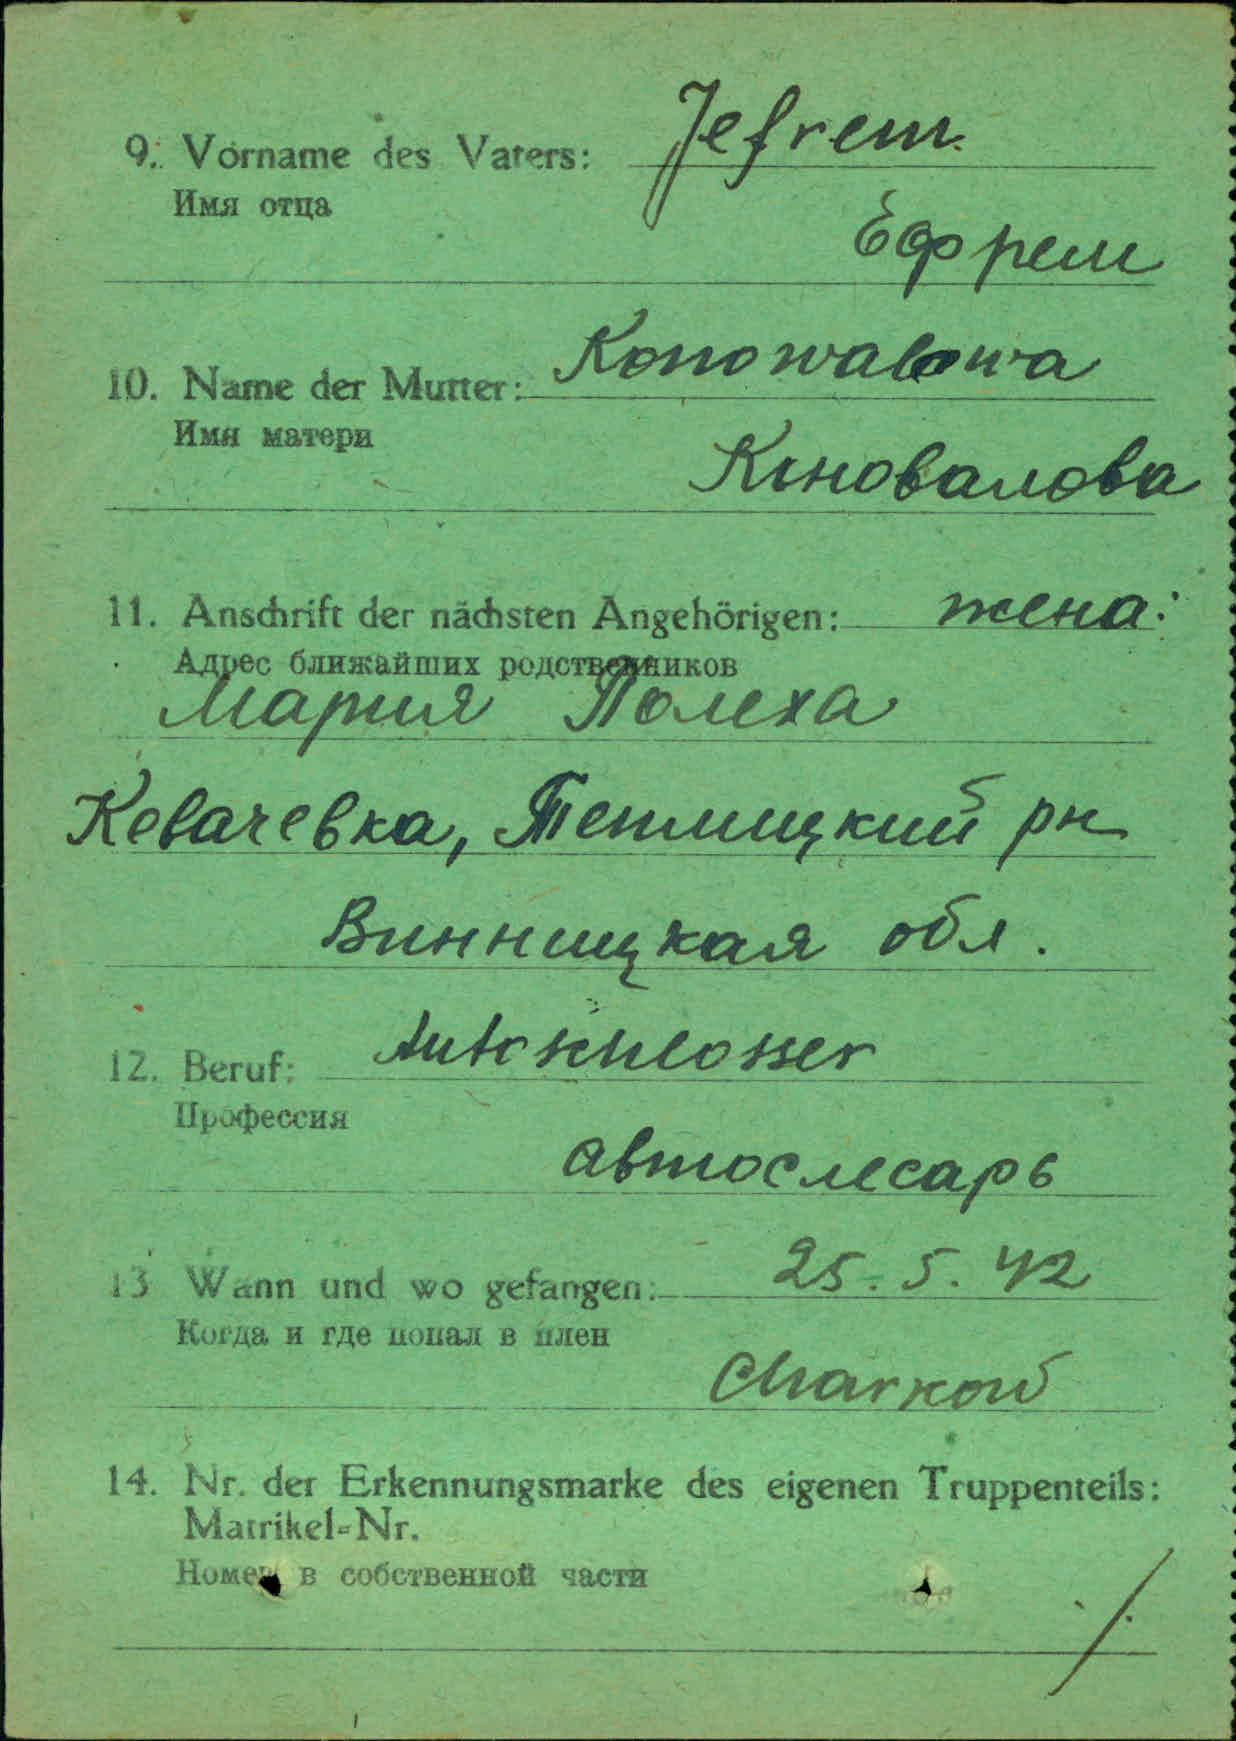 9. Vorname des Vaters: Jefrem.
Имя отца
Ефрем
10. Name der Mutter: Konowalowa
Имя матери
Коновалова
11. Anschrift der nächsten Angehörigen: жена:
Адрес ближайших родственников
Мария Полеха
Кевачевка, Теплицкий рн
Винницкая обл.
12. Beruf: Autoschlosser
Профессия
автослесарь
13 Wann und wo gefangen: 25. 5. 42
Когда и где попал в плен
Charkow
14. Nr. der Erkennungsmarke des eigenen Truppenteils:
Matrikel-Nr.
Номер в собственной части
./.